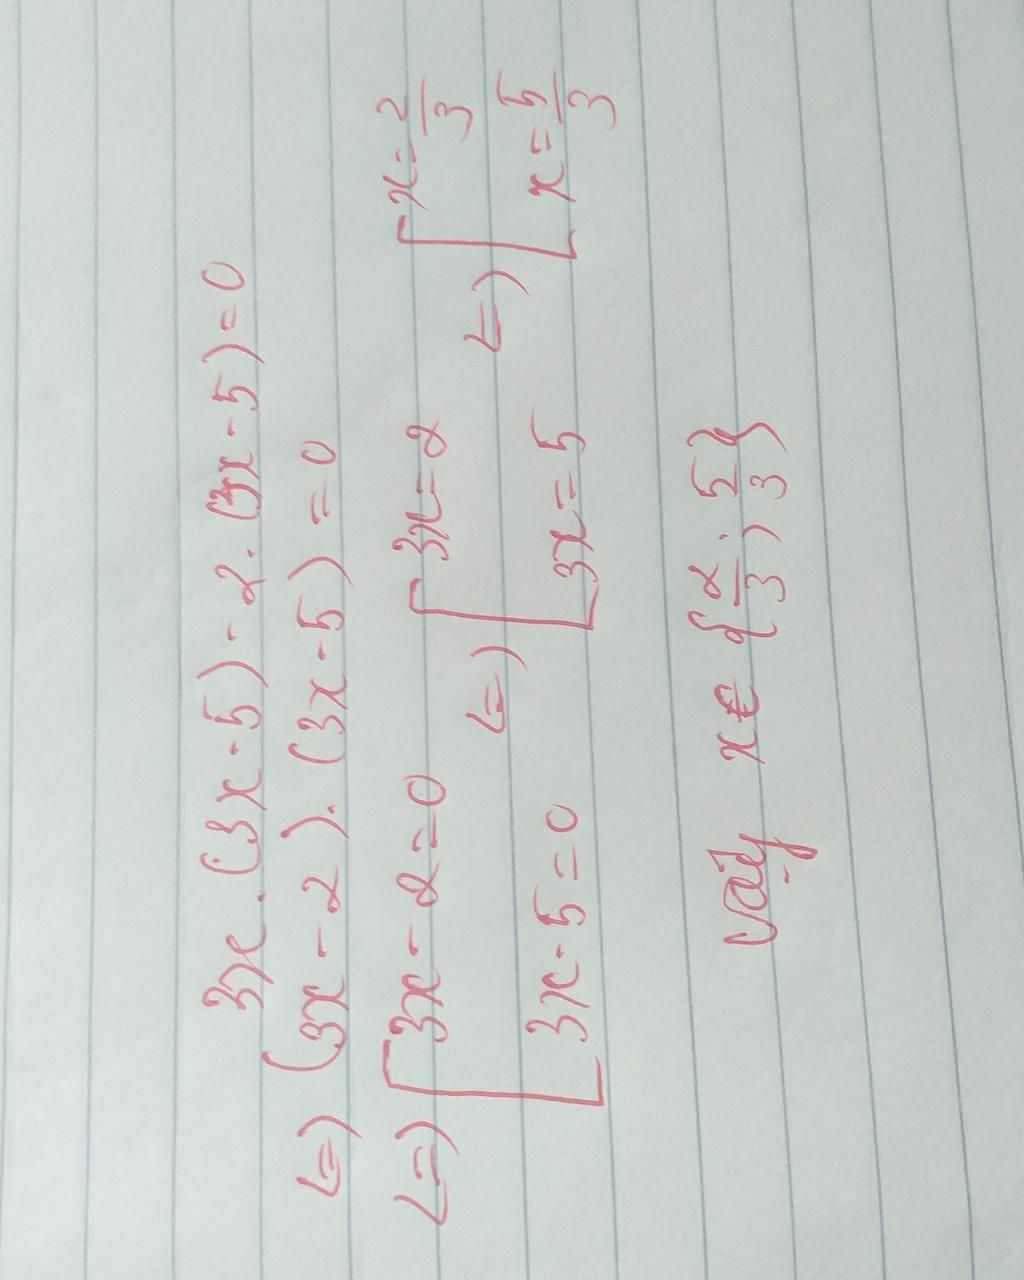 3x.(3x-5)-2.(3x-5)=0
<=> (3x-2).(3x-5)=0
<=> [3x-2=0 <=> [3x=2 <=> [x=2/3
[3x-5=0 [3x=5 [x=5/3
vậy x∈{2/3; 5/3}